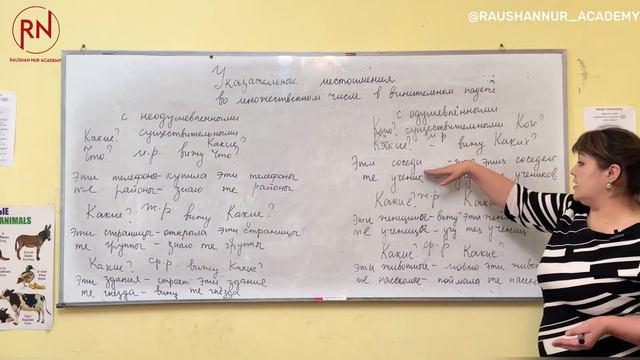 RN
RAUSHAN NUR ACADEMY
@RAUSHANNUR_ACADEMY
Указательные местоимения
во множественном числе в винительном падеже.
с неодушевленными
существительными
Какие? Какие?
Что? м.р. вижу Что?
Эти телефоны - купила эти телефоны
те районы - знаю те районы
Какие? ж.р вижу Какие?
Эти страницы - открыла эти страницы
те группы - знаю те группы
Какие? ср.р. вижу Какие?
Эти здания - строят эти здания
те гнёзда - вижу те гнёзда
с одушевлёнными
Кто? существительными Кого?
Какие? м.р - вижу Каких?
Эти соседи - этих соседей
те ученик учеников
Какие? ж.р Каки
Эти женщины - вижу эти жен
те ученицы - учу тех учениц
Какие? ср.р. Каки
Эти животные - люблю эти живот
те насекомые - поймала те насеко
ЫЕ
ANIMALS